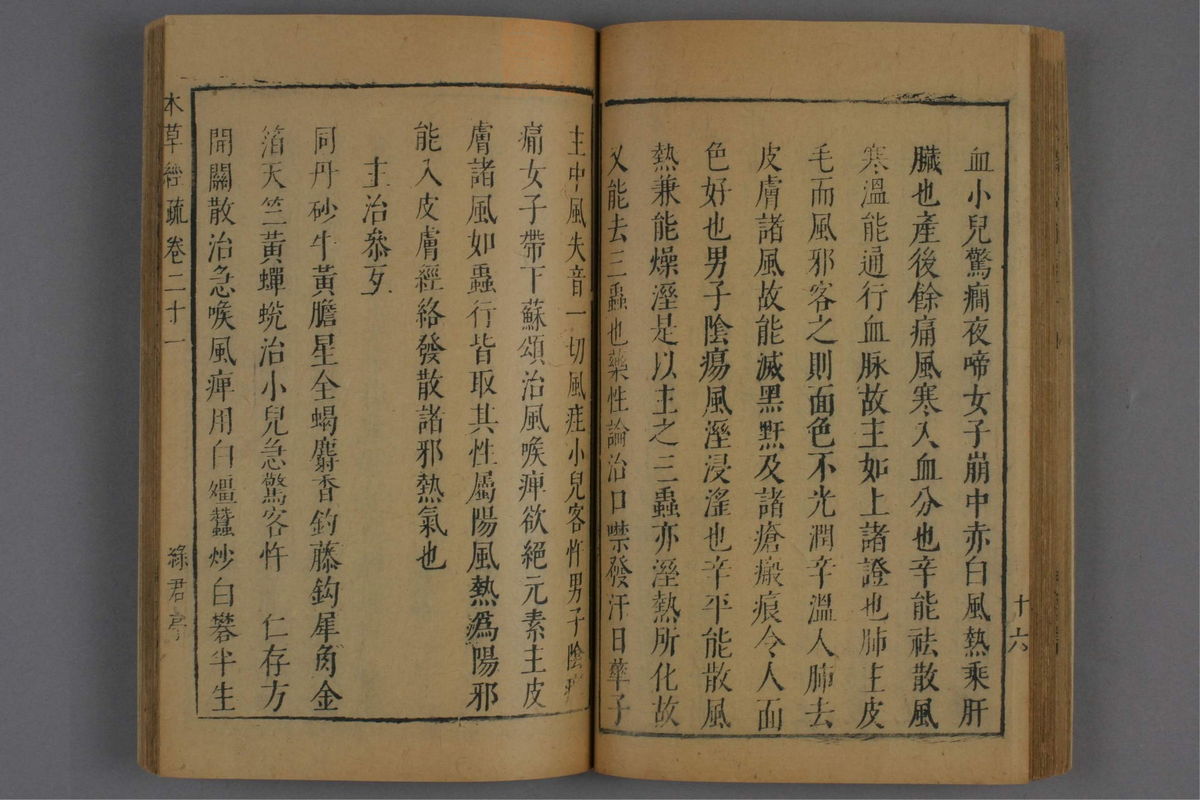 血小兒驚癇夜啼女子崩中赤白風熱乘肝
臟也產後餘痛風寒入血分也辛能祛散風
寒溫能通行血脉故主如上諸證也肺主皮
毛而風邪客之則面色不光潤辛溫入肺去
皮膚諸風故能滅黑䵟及諸瘡瘢痕令人面
色好也男子陰瘍風溼浸淫也辛平能散風
熱兼能燥溼是以主之三蟲亦溼熱所化故
又能去三蟲也藥性論治口噤發汗日華子
十六
主中風失音一切風疰小兒客忤男子陰
痛女子帶下蘇頌治風喉痺欲絕元素主皮
膚諸風如蟲行皆取其性屬陽風熱爲陽邪
能入皮膚經絡發散諸邪熱氣也
主治叅互
同丹砂牛黃膽星全蝎麝香釣藤鈎犀角金
箔天竺黃蟬蛻治小兒急驚客忤 仁存方
開關散治急喉風痺用白殭蠶炒白礬半生
本草經疏卷二十一
綠君亭